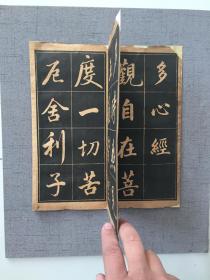 多心經
觀自在菩
度一切苦
厄舍利子